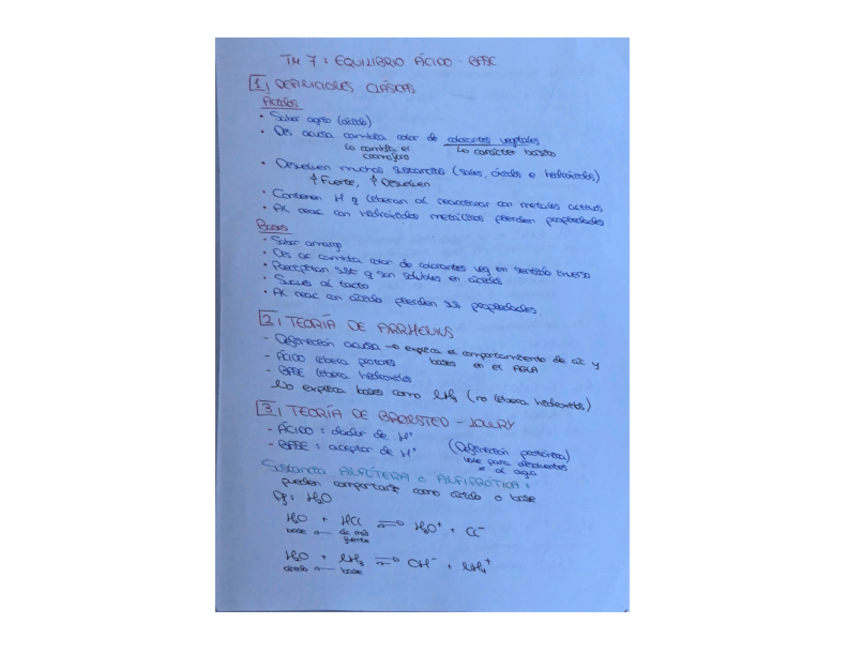 TM 7: EQUILIBRIO ÁCIDO - BASE
1, DEFINICIONES CLÁSICAS
Ácidos
• Sabor agrio (ácido)
• Dis acuosa cambia color de colorantes vegetales
lo cambia el cromóforo
lo carácter básico
• Disuelven muchas sustancias (sales, óxidos e hidróxidos)
↑ Fuerte, ↑ Disuelven
• Contienen H q liberan al reaccionar con metales activos
• Al reac con hidróxidos metálicos pierden propiedades
Bases
• Sabor amargo
• Dis ac cambia color de colorantes veg en sentido inverso
• Precipitan sust q son solubles en ácidos
• Suaves al tacto
• Al reac con ácido pierden sus propiedades.
2, TEORÍA DE ARRHENIUS
- Disociación acuosa → explica el comportamiento de ác y bases en el AGUA
- ÁCIDO libera protones
- BASE libera hidróxidos
No explica bases como NH3 (no libera hidróxidos)
3, TEORÍA DE BRØNSTED - LOWRY
- ÁCIDO: dador de H+
- BASE: aceptor de H+
(Definición protónica) vale para disolventes ≠ al agua
Sustancia ANFÓTERA o ANFIPRÓTICA:
pueden comportarse como ácido o base
Ej: H2O
H2O + HCl ⇌ H3O+ + Cl-
base ← ác más fuerte
H2O + NH3 ⇌ OH- + NH4+
ácido ← base